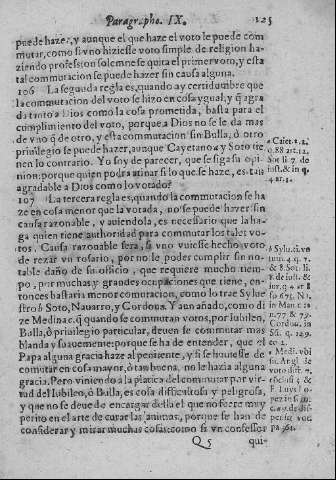 Paragrapho. IX. 125
puede hazer, y aunque el que haze el voto le puede com
mutar, como si vno hiziesse voto simple de religion ha-
ziendo profession solemne se quita el primer voto, y esta
tal commutacion se puede hazer sin causa alguna.
106 La segunda regla es, quando ay certidumbre que
la commutacion del voto se hizo en cosa ygual, y q̃ agra
da tanto a Dios como la cosa prometida, basta para el
cumplimiento del voto, porque a Dios no se le da mas
de vno q̃ de otro, y esta commutacion sin Bulla, ô otro
priuilegio se puede hazer, aunque Cayetano a y Soto tie
nen lo contrario. Yo soy de parecer, que se siga su opi
nion: porque quien podra atinar si lo que se haze, es tan
agradable a Dios como lo votado?
107 La tercera regla es, quando la commutacion se ha
ze en cosa menor que la votada, no se puede hazer sin
causa razonable, y auiendola, es necessario que la ha-
ga quien tiene authoridad para commutar los tales vo-
tos. Causa razonable sera, si vno vuiesse hecho voto
de rezar vn rosario, por no le poder cumplir sin no-
table daño de su officio, que requiere mucho tiem-
po, por muchas y grandes occupaciones que tiene, en-
tonces bastaria menor commutacion, como lo trae Sylue
stro b Soto, Nauarro, y Cordoua. Y aun añado, como di
ze Medina c. q̃ quando se commutan votos, por Iubileo,
Bulla, ô priuilegio particular, deuen se commutar mas
blanda y suauemente: porque se ha de entender, que el
Papa alguna gracia haze al penitente, y si se huuiesse de
commutar en cosa mayor, ô tan buena, no le hazia alguna
gracia. Pero viniendo a la platica del commutar por vir-
tud del Iubileo, ô Bulla, es cosa difficultosa y peligrosa,
y que no se deue de encargar della el que no fuere muy
perito en el arte de curar las animas, porque se han de
considerar y mirar muchas cosas: como si vn confessor
Q 5 qui-
a Caiet. 2.2.
q. 88 art. 12.
Sot. li. 7. de
iust. & in q.
4 ar. 3.
b Sylu. ti. vo
tum 4. q. 7.
& 8 Sot. li.
7. de iust. &
iur. q 4 ar 8
fo 675. N.
in Man. c 12.
n. 77 & 79.
Cordou. in
Sũ. q. 149.